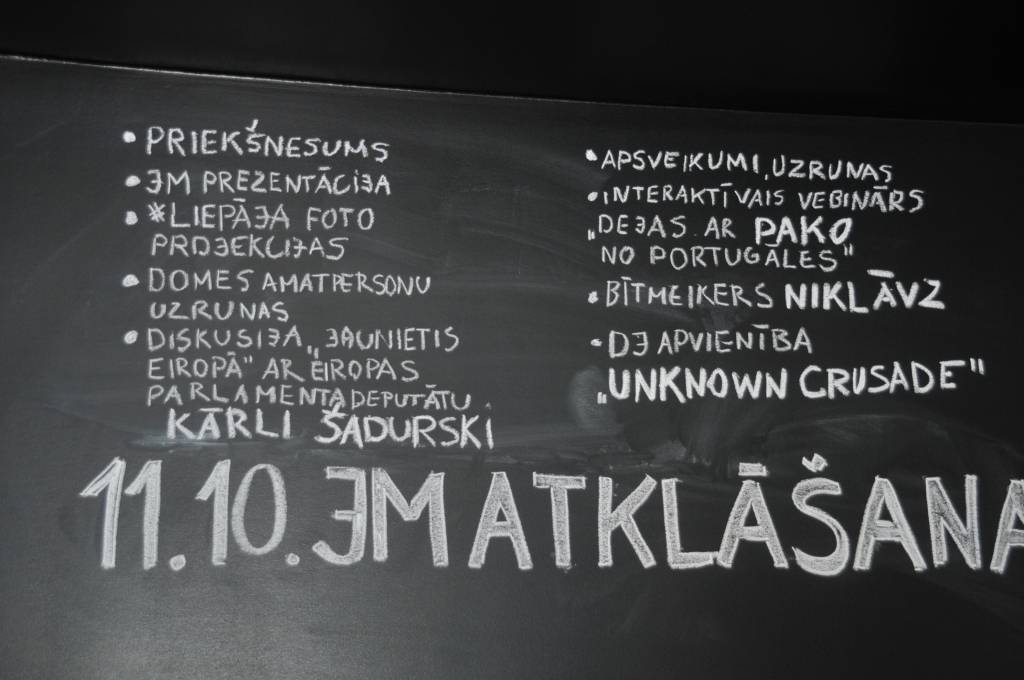 • PRIEKŠNESUMS
• JM PREZENTĀCIJA
• *LIEPĀJA FOTO
PROJEKCIJAS
• DOMES AMATPERSONU
UZRUNAS
• DISKUSIJA „JAUNIETIS
EIROPĀ" AR EIROPAS
PARLAMENTA DEPUTĀTU
KĀRLI ŠADURSKI
• APSVEIKUMI, UZRUNAS
• INTERAKTĪVAIS VEBINĀRS
„DEJAS AR PAKO
NO PORTUGĀLES"
• BĪTMEIKERS NIKLĀVZ
• DJ APVIENĪBA
„UNKNOWN CRUSADE"
11.10. JM ATKLĀŠANA